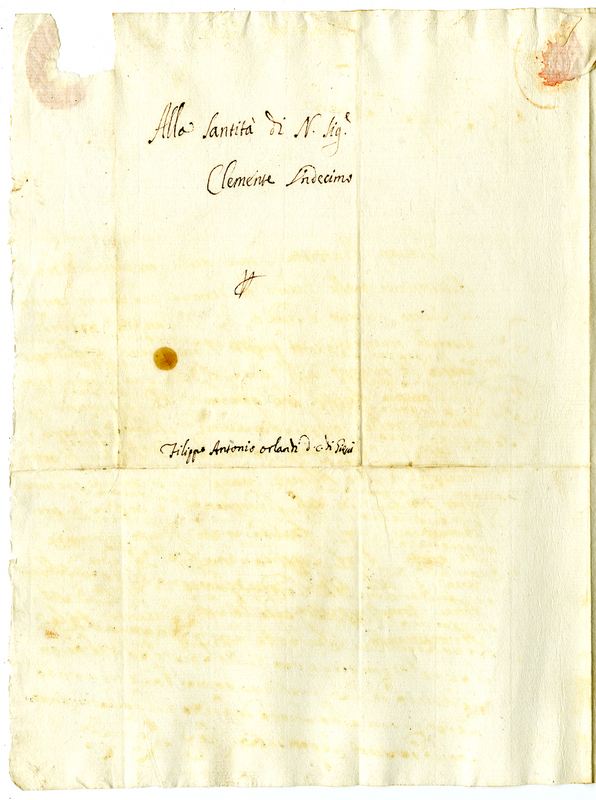 Alla Santità di N. Sig.re
Clemente Undecimo
Filippo Antonio Orlandi